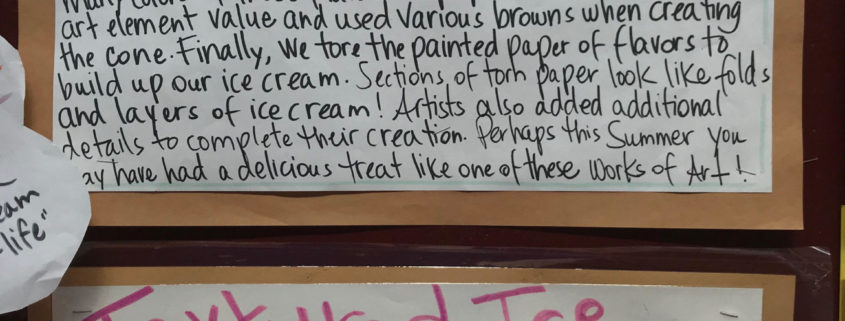 art element value and used various browns when creating
the cone. Finally, we tore the painted paper of flavors to
build up our ice cream. Sections of torn paper look like folds
and layers of ice cream! Artists also added additional
details to complete their creation. Perhaps this Summer you
ay have had a delicious treat like one of these works of Art!
eam
life"